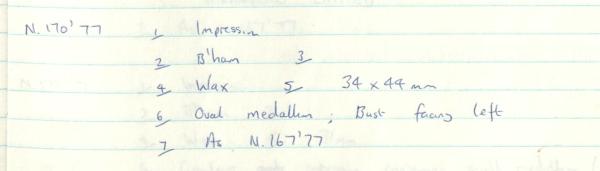 N.170'77 1 Impression
2 B'ham 3
4 Wax 5 34 x 44 mm
6 Oval medallion ; Bust facing left
7 As N.167'77